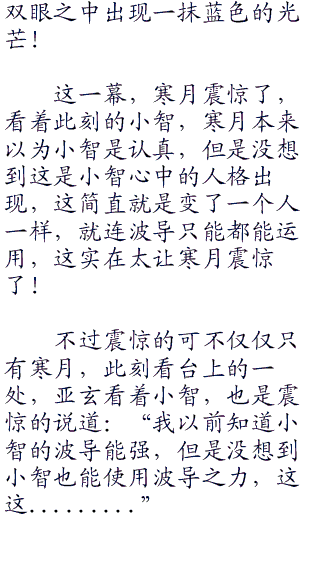 双眼之中出现一抹蓝色的光
芒！
这一幕，寒月震惊了，
看着此刻的小智，寒月本来
以为小智是认真，但是没想
到这是小智心中的人格出
现，这简直就是变了一个人
一样，就连波导只能都能运
用，这实在太让寒月震惊
了！
不过震惊的可不仅仅只
有寒月，此刻看台上的一
处，亚玄看着小智，也是震
惊的说道：“我以前知道小
智的波导能强，但是没想到
小智也能使用波导之力，这
这.........”